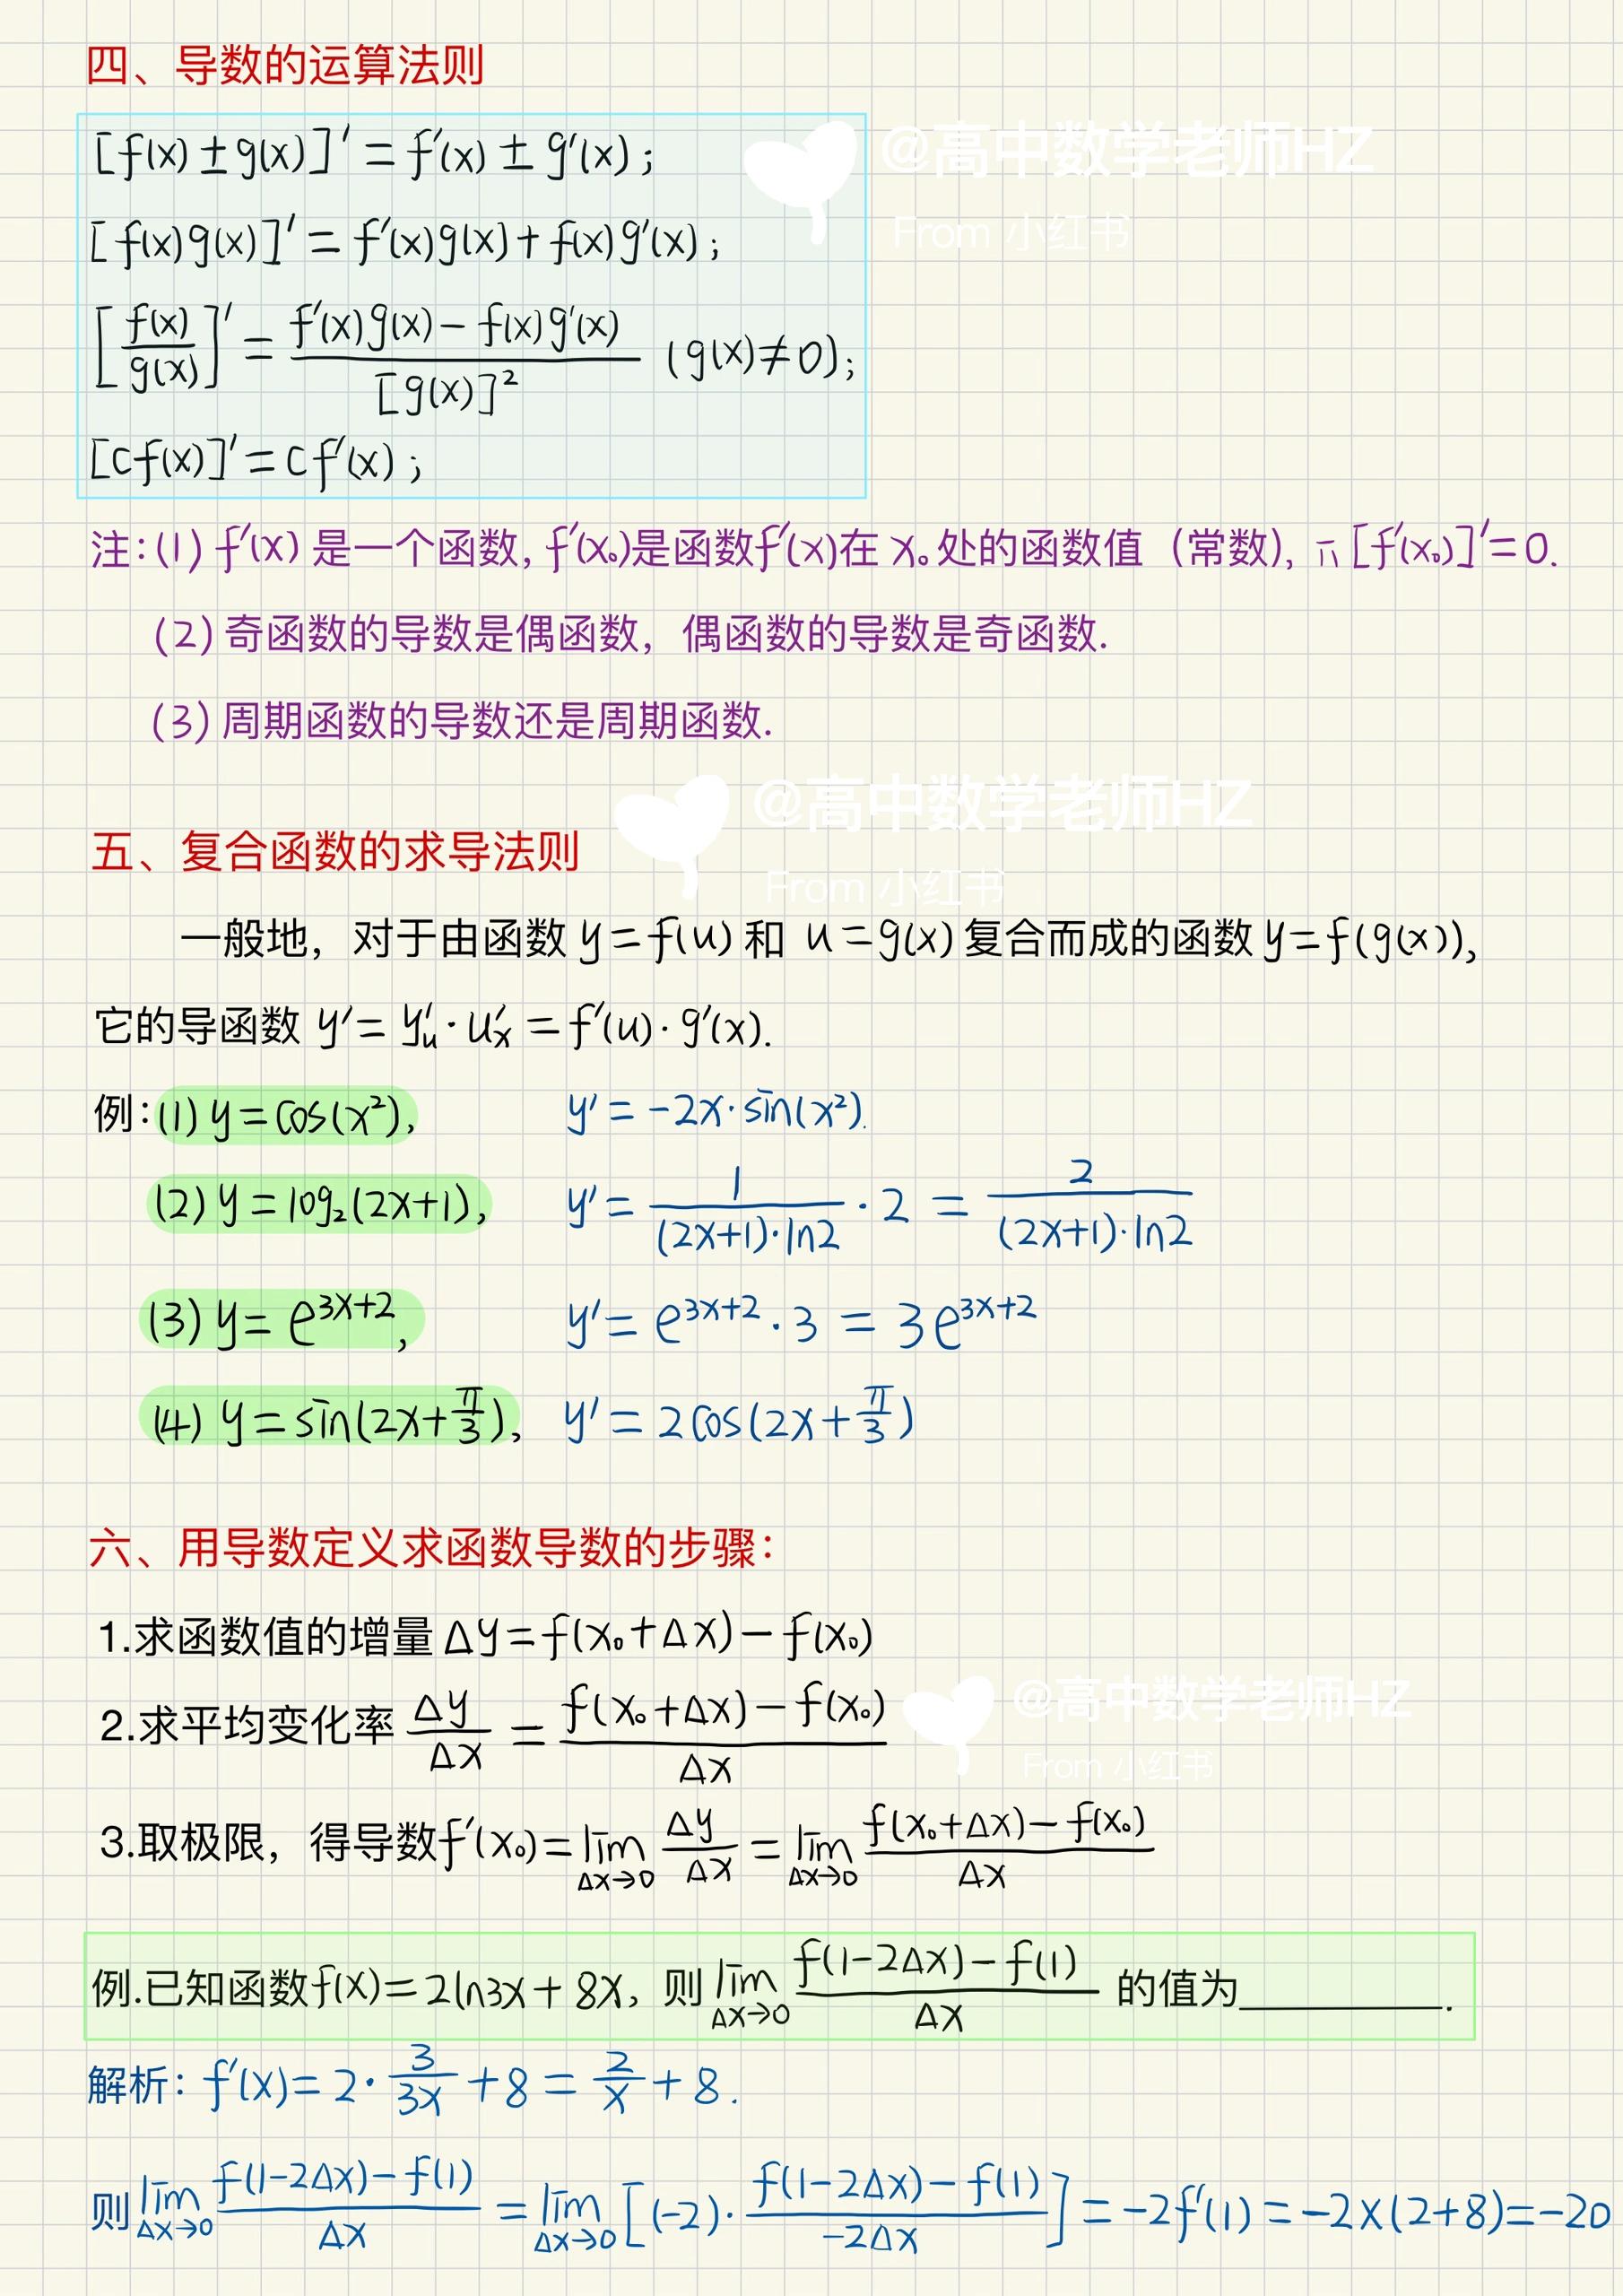 四、导数的运算法则
[f(x)±g(x)]′=f′(x)±g′(x);
@高中数学老师HZ
From 小红书
[f(x)g(x)]′=f′(x)g(x)+f(x)g′(x);
[f(x)/g(x)]′=(f′(x)g(x)-f(x)g′(x))/[g(x)]² (g(x)≠0);
[cf(x)]′=cf′(x);
注:(1) f′(x) 是一个函数, f′(x₀)是函数f′(x)在 x₀ 处的函数值(常数), [f′(x₀)]′=0.
(2) 奇函数的导数是偶函数，偶函数的导数是奇函数.
(3) 周期函数的导数还是周期函数.
@高中数学老师HZ
From 小红书
五、复合函数的求导法则
一般地，对于由函数 y=f(u) 和 u=g(x) 复合而成的函数 y=f(g(x)),
它的导函数 y′=y′ᵤ·u′ₓ=f′(u)·g′(x).
例:(1) y=cos(x²), y′=-2x·sin(x²).
(2) y=log₂(2x+1), y′=1/((2x+1)·ln2)·2=2/((2x+1)·ln2)
(3) y=e³ˣ⁺², y′=e³ˣ⁺²·3=3e³ˣ⁺²
(4) y=sin(2x+π/3), y′=2cos(2x+π/3)
六、用导数定义求函数导数的步骤：
1.求函数值的增量 Δy=f(x₀+Δx)-f(x₀)
2.求平均变化率 Δy/Δx=(f(x₀+Δx)-f(x₀))/Δx
@高中数学老师HZ
From 小红书
3.取极限，得导数f′(x₀)=lim(Δx→0) Δy/Δx=lim(Δx→0) (f(x₀+Δx)-f(x₀))/Δx
例.已知函数f(x)=2ln3x+8x，则 lim(Δx→0) (f(1-2Δx)-f(1))/Δx 的值为________.
解析：f′(x)=2·3/3x+8=2/x+8.
则 lim(Δx→0) (f(1-2Δx)-f(1))/Δx=lim(Δx→0) [(-2)·(f(1-2Δx)-f(1))/(-2Δx)]=-2f′(1)=-2×(2+8)=-20